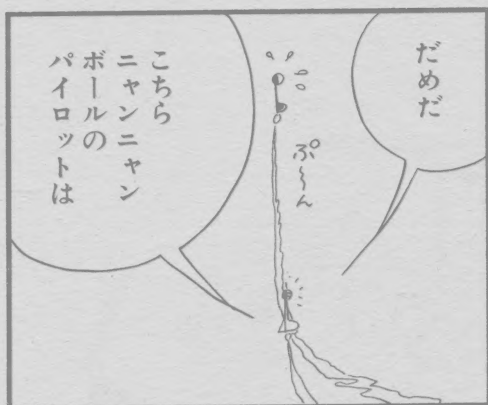 だめだ
ぷ〜ん
こちら
ニャンニャン
ボールの
パイロットは